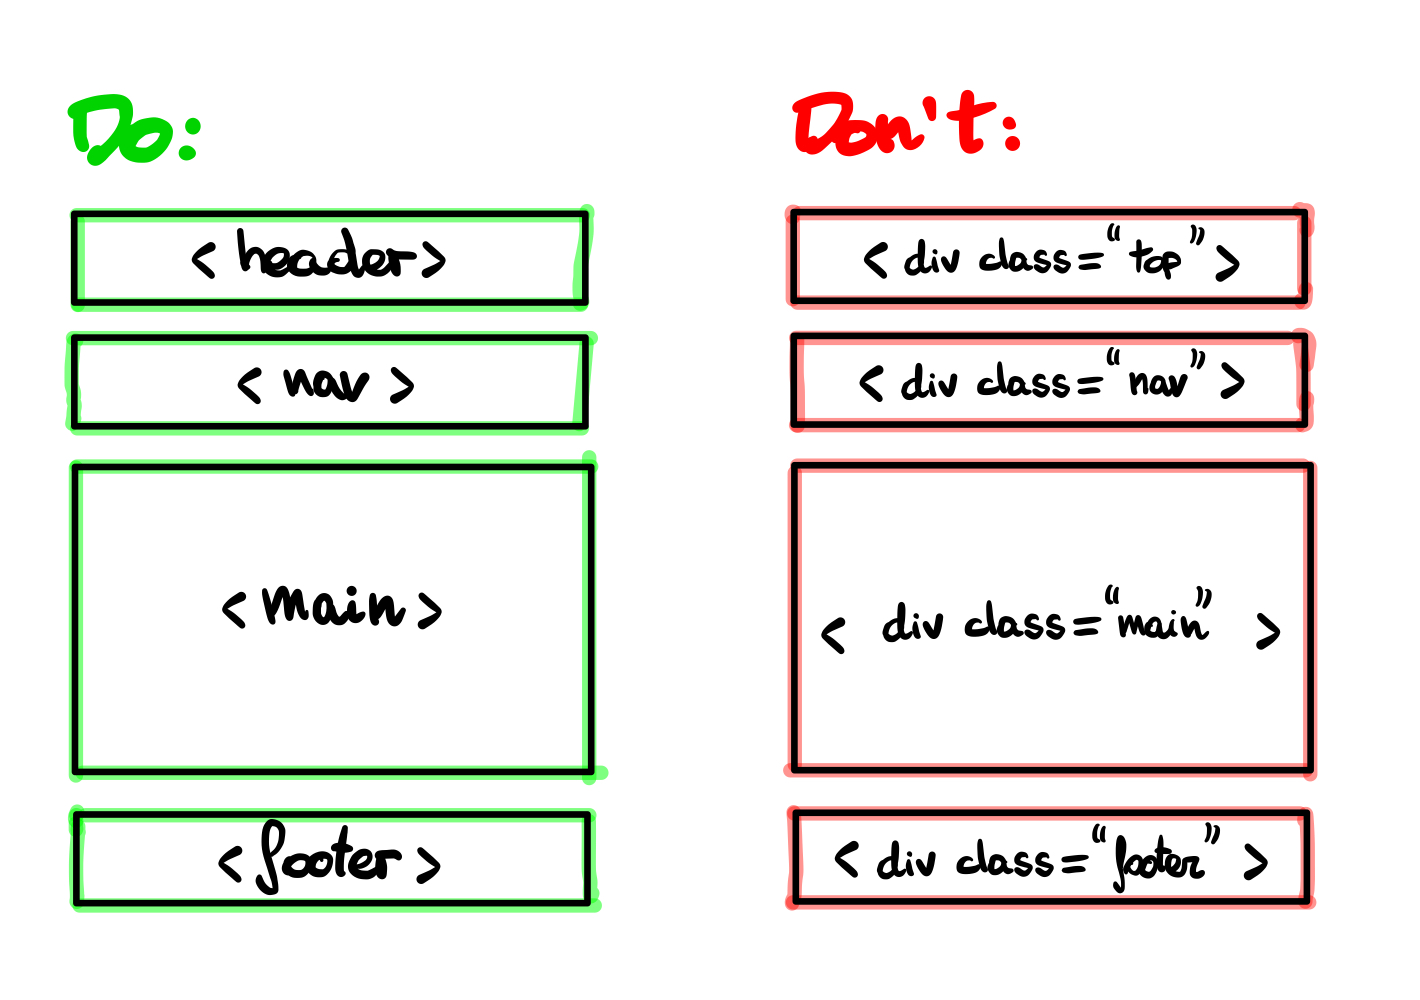 Do:
< header >
< nav >
< main >
< footer >
Don't:
< div class = “top” >
< div class = “nav” >
< div class = “main” >
< div class = “footer” >